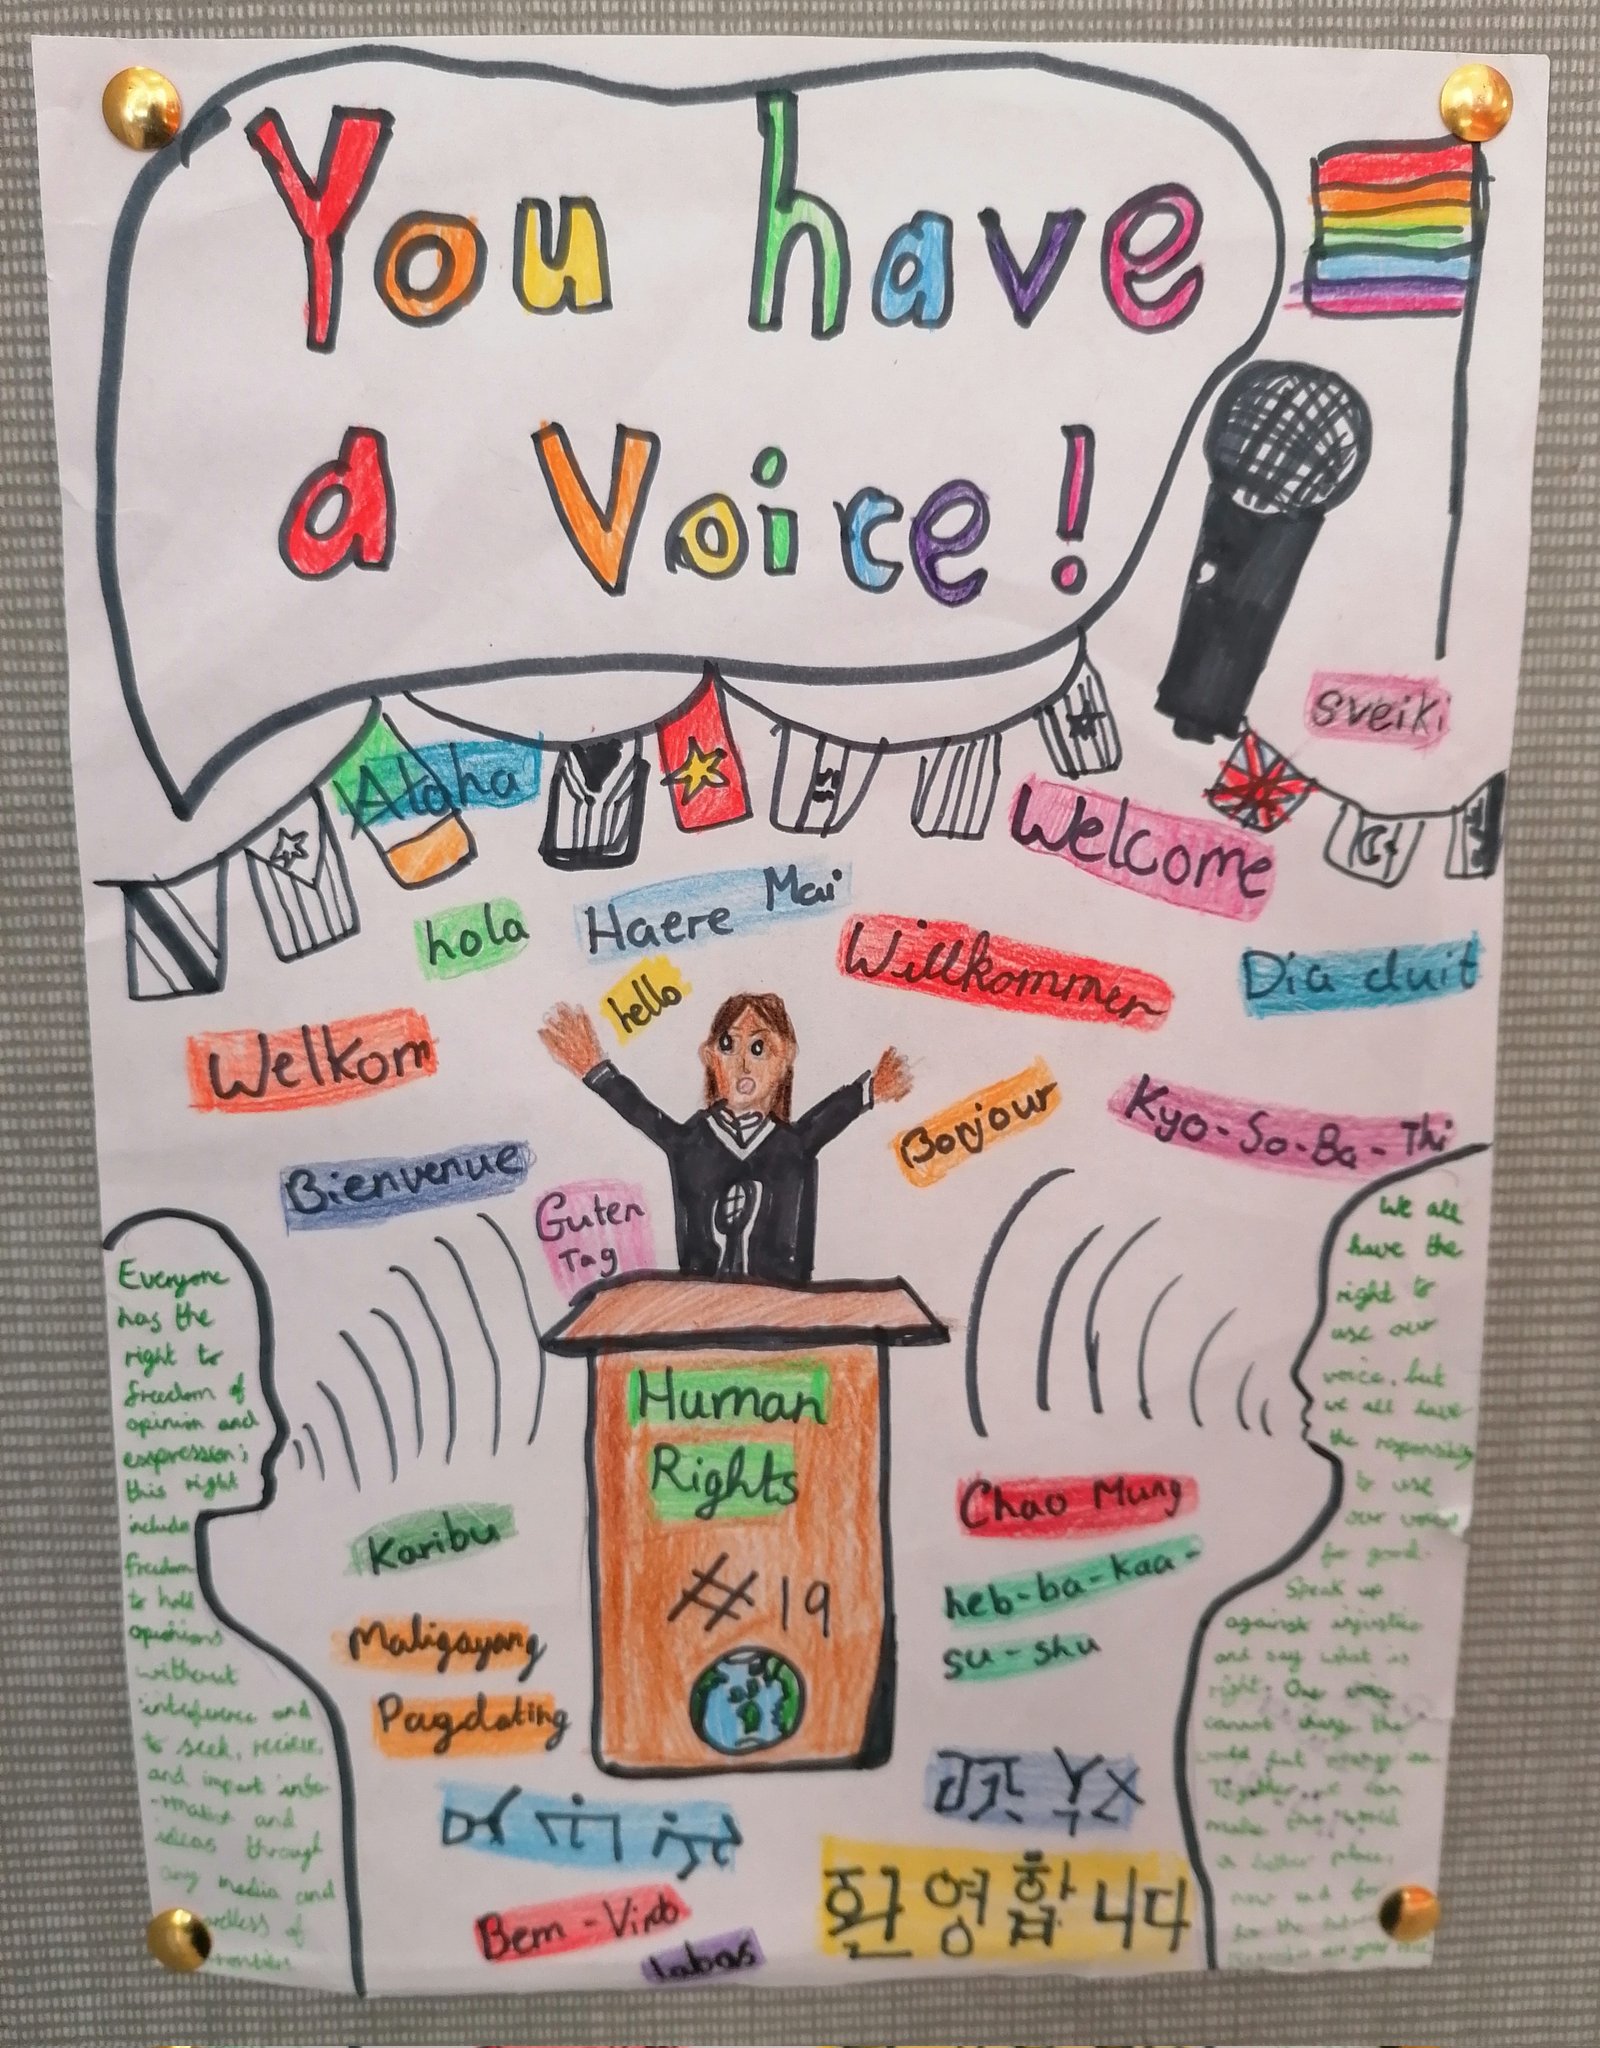 You have
a Voice!
sveiki
Aloha
Welcome
hola
Haere Mai
Willkommen
Dia duit
hello
Welkom
Bonjour
Kyo-So-Ba-Thi
Bienvenue
Guten
Tag
Human
Rights
#19
Karibu
Chao Mung
heb-ba-kaa-
su-shu
Maligayang
Pagdating
환영합니다
Bem-Vindo
labas
Everyone
has the
right to
freedom of
opinion and
expression;
this right
includes
freedom
to hold
opinions
without
interference and
to seek, receive,
and impart info-
-rmation and
ideas through
any media and
We all
have the
right to
use our
voice, but
we all have
the responsibility
to use
our voice
for good.
Speak up
against injustice
and say what is
right. One voice
cannot change the
world but many can.
Together we can
make the world
a better place,
now and for